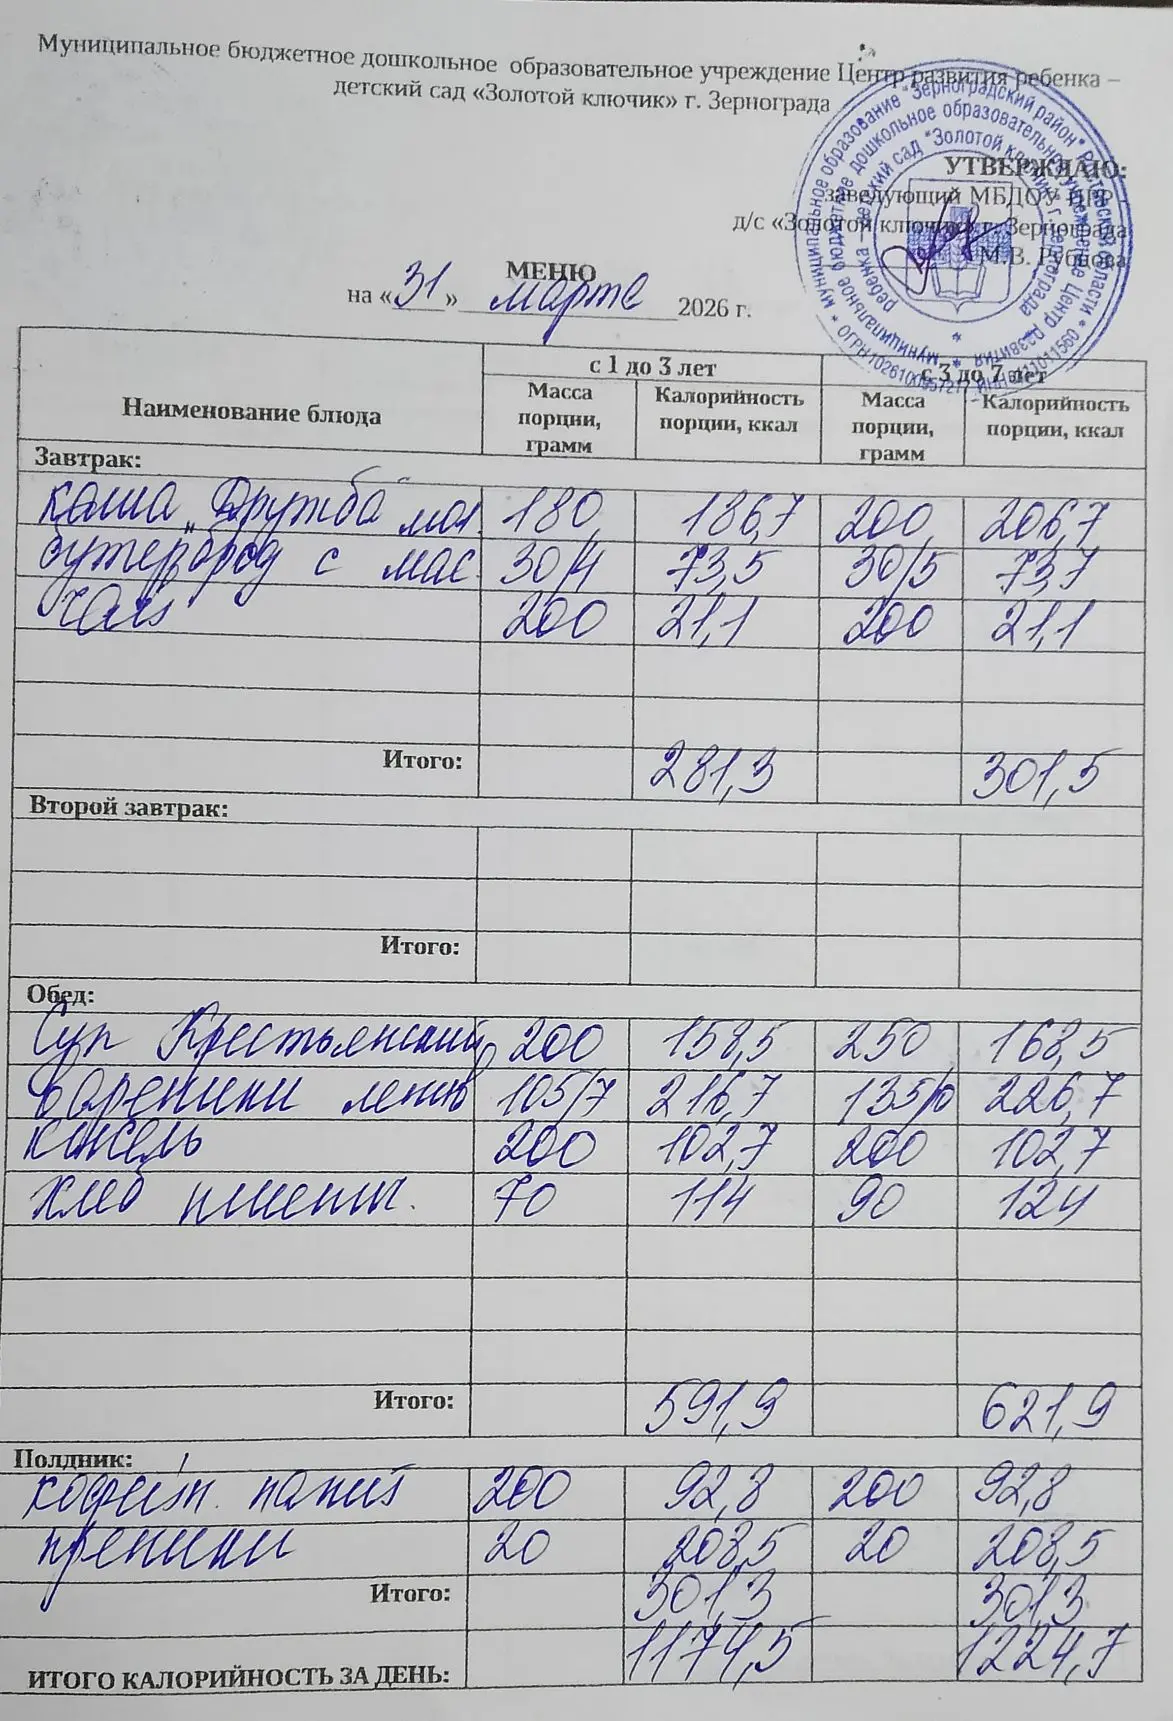 Муниципальное бюджетное дошкольное образовательное учреждение Центр развития ребенка –
детский сад «Золотой ключик» г. Зернограда
УТВЕРЖДАЮ:
заведующий МБДОУ ЦРР –
д/с «Золотой ключик» г. Зернограда
М.В. Рубцова
МЕНЮ
на «31» марта 2026 г.
Наименование блюда с 1 до 3 лет с 3 до 7 лет
Масса порции, грамм Калорийность порции, ккал Масса порции, грамм Калорийность порции, ккал
Завтрак:
каша "Дружба" мол. 180 186,7 200 206,7
бутерброд с мас. 30/4 73,5 30/5 73,7
чай 200 21,1 200 21,1
Итого: 281,3 301,5
Второй завтрак:
Итого:
Обед:
Суп Крестьянский 200 158,5 250 168,5
вареники лен 105/7 216,7 135/ 226,7
кисель 200 102,7 200 102,7
хлеб пшенич. 70 114 90 124
Итого: 591,9 621,9
Полдник:
кофейн. напит 200 92,8 200 92,8
пряники 20 208,5 20 208,5
Итого: 301,3 301,3
ИТОГО КАЛОРИЙНОСТЬ ЗА ДЕНЬ: 1174,5 1224,7
муниципальное образование "Зерноградский район" Ростовской области
ОГРН 1026100957217
муниципальное бюджетное дошкольное образовательное учреждение Центр развития
ребенка – детский сад "Золотой ключик" г. Зернограда